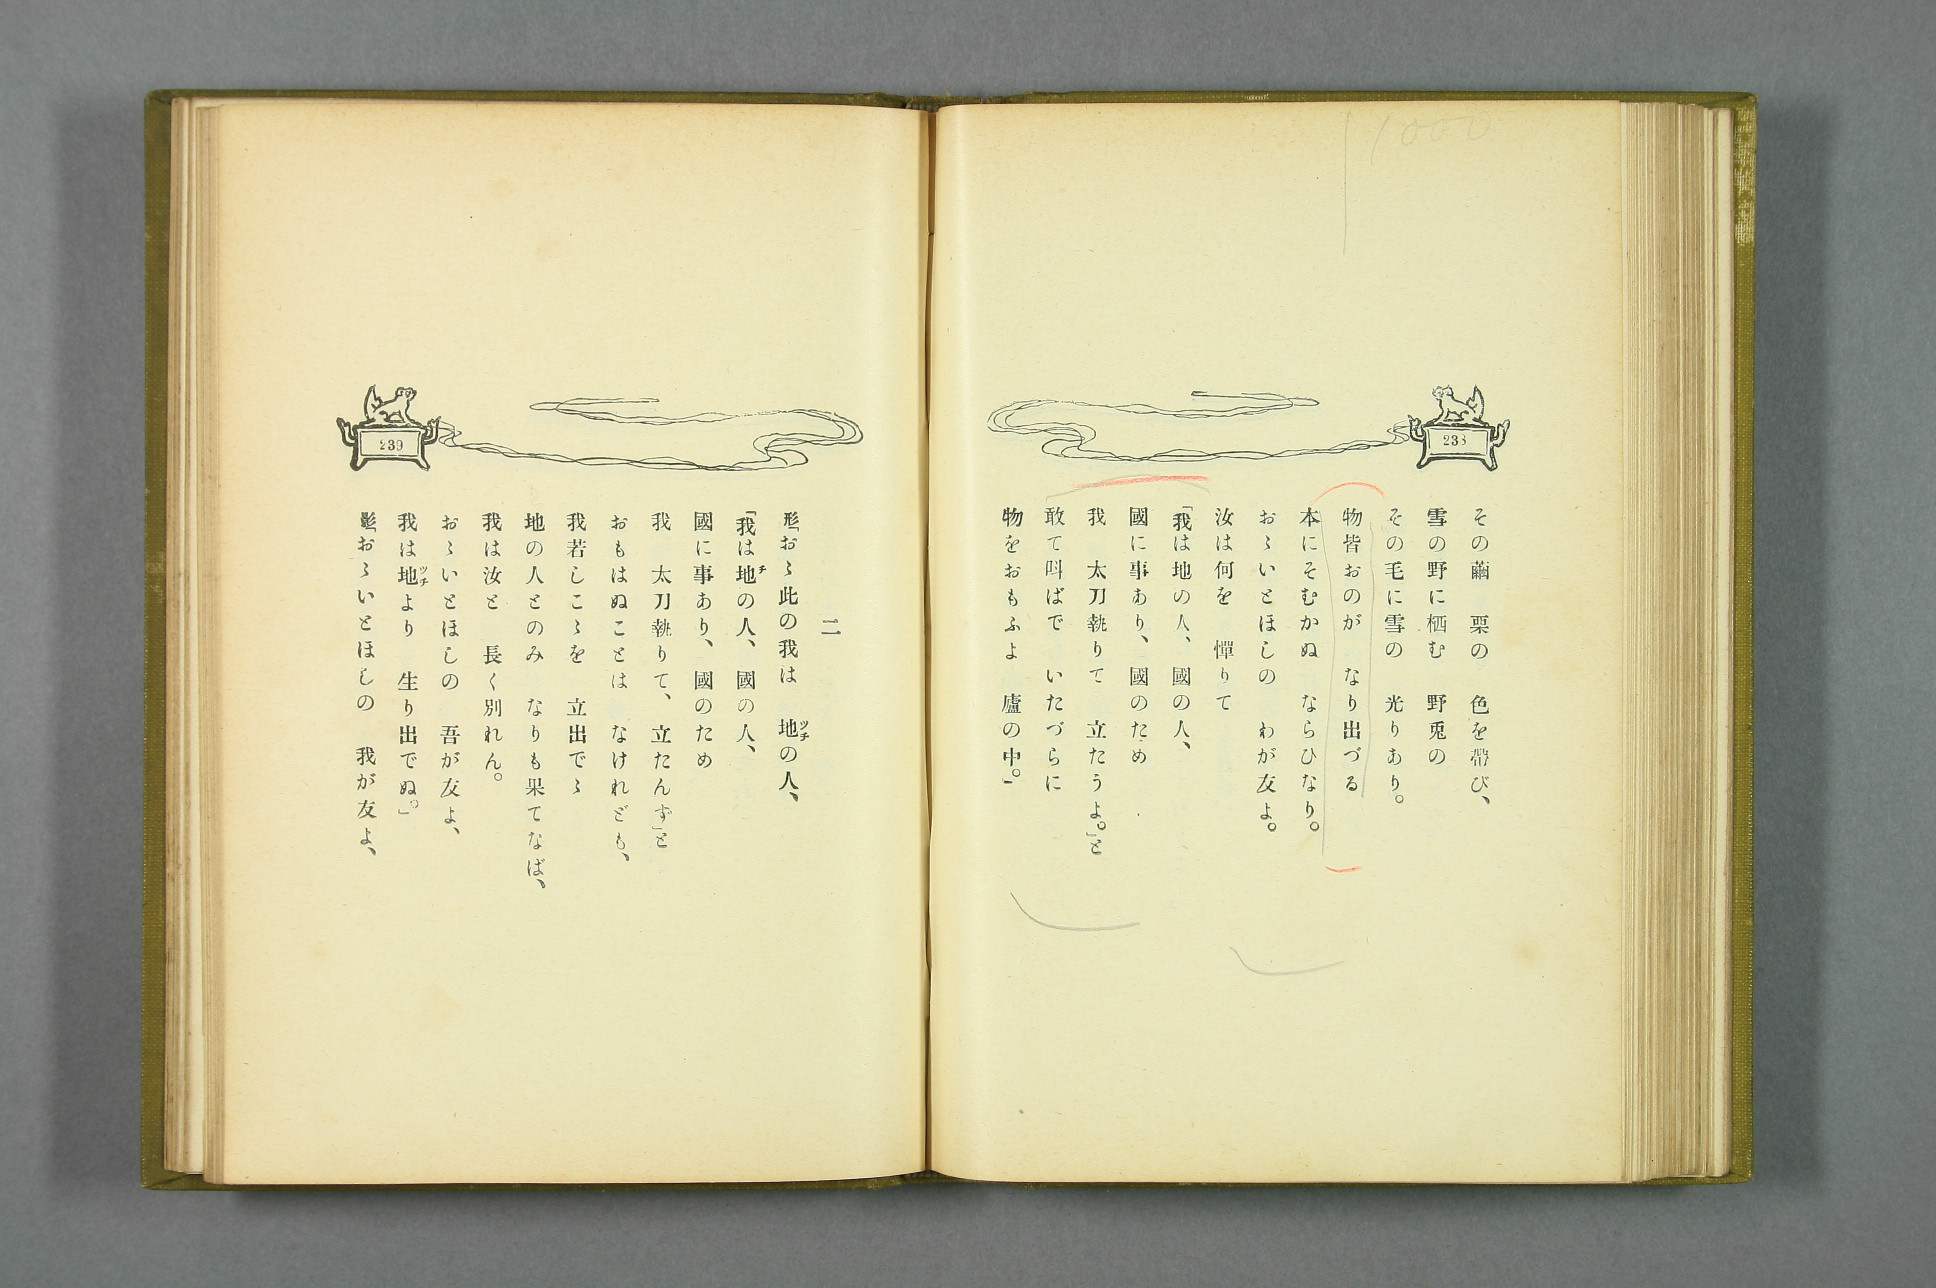 1000
238
その繭 栗の 色を帶び、
雪の野に栖む 野兎の
その毛に雪の 光りあり。
物皆おのが なり出づる
本にそむかぬ ならひなり。
おゝいとほしの わが友よ。
汝は何を 憚りて
「我は地の人、國の人、
國に事あり、國のため
我 太刀執りて 立たうよ。」と
敢て叫ばで いたづらに
物をおもふよ 廬の中。」
239
二
形「おゝ此の我は 地ツチの人、
「我は地チの人、國の人、
國に事あり、國のため
我 太刀執りて、立たんず」と
おもはぬことは なけれども、
我若しこゝを 立出でゝ
地の人とのみ なりも果てなば、
我は汝と 長く別れん。
おゝいとほしの 吾が友よ、
我は地ツチより 生り出でぬ。」
影「おゝいとほしの 我が友よ、